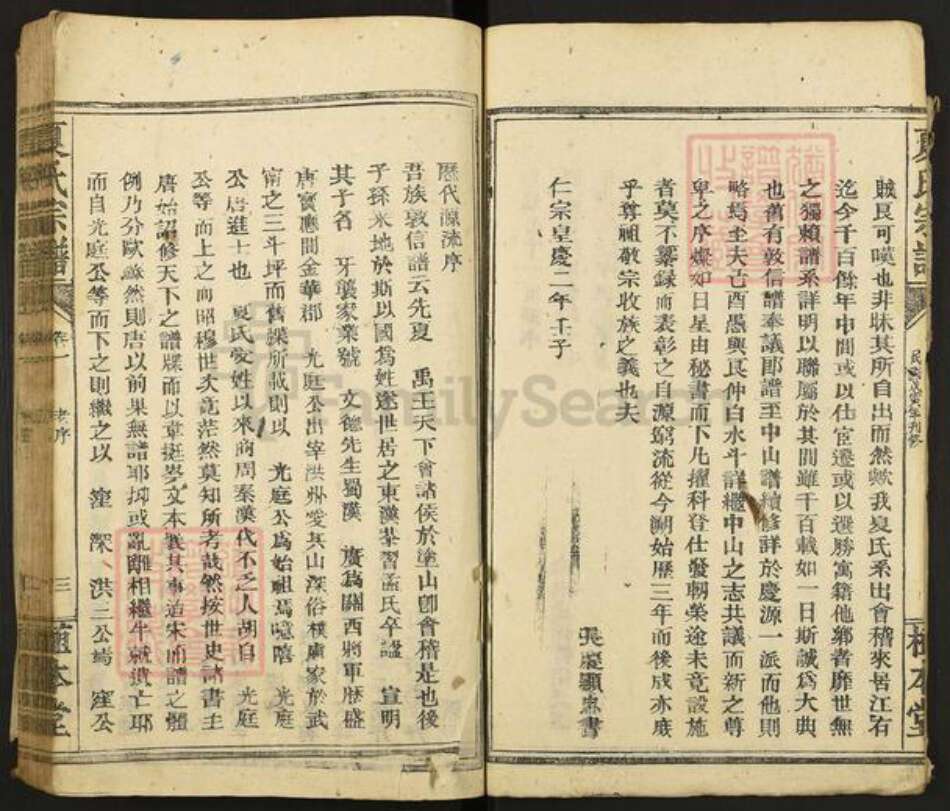 賊良可嘆也非昧其所自出而然歟我夏氏系出會稽來居江右
迄今千百餘年中間或以仕宦遷或以選勝寓籍他鄉者靡世無
之獨賴譜系詳明以聯屬於其間雖千百載如一日斯誠為大典
也舊有敦信譜奉議郎譜至中山譜續修詳於慶源一派而他則
略焉至夫己酉愚與良仲白水斗詳繼中山之志共議而新之尊
卑之序燦如日星由秘書而下凡擢科登仕發軔榮途未竟設施
者莫不纂録而表彰之自源窮流從今溯始歷三年而後成亦庶
乎尊祖敬宗收族之義也夫
仁宗皇慶二年壬子
長慶顯忠書
夏氏宗譜
植本堂
歷代源流序
吾族敦信譜云先夏 禹王天下會諸侯於塗山卽會稽是也後
子孫采地於斯以國為姓遂世居之東漢葊習孟氏卒諡 宣明
其子名 牙襲家業號 文德先生蜀漢 廣為關西將軍歷盛
唐寶應間金華郡 光庭公出宰洪州愛其山深俗樸廣家於武
甯之三斗坪而舊譜所載則以 光庭公為始祖焉噫嘻 光庭
公唐進士也 夏氏受姓以來商周秦漢代不乏人胡自 光庭
公等而上之而昭穆世次竟茫然莫知所考哉然按世史諸書王
唐始詔修天下之譜牒而以韋挺岑文本董其事迨宋而譜之體
例乃分歐蘇然則唐以前果無譜耶抑或亂離相繼半就遺亡耶
而自光庭公等而下之則繼之以 瀅 深 洪三公焉 瀅公
夏氏宗譜
卷一
老序
三
植本堂
FamilySearch